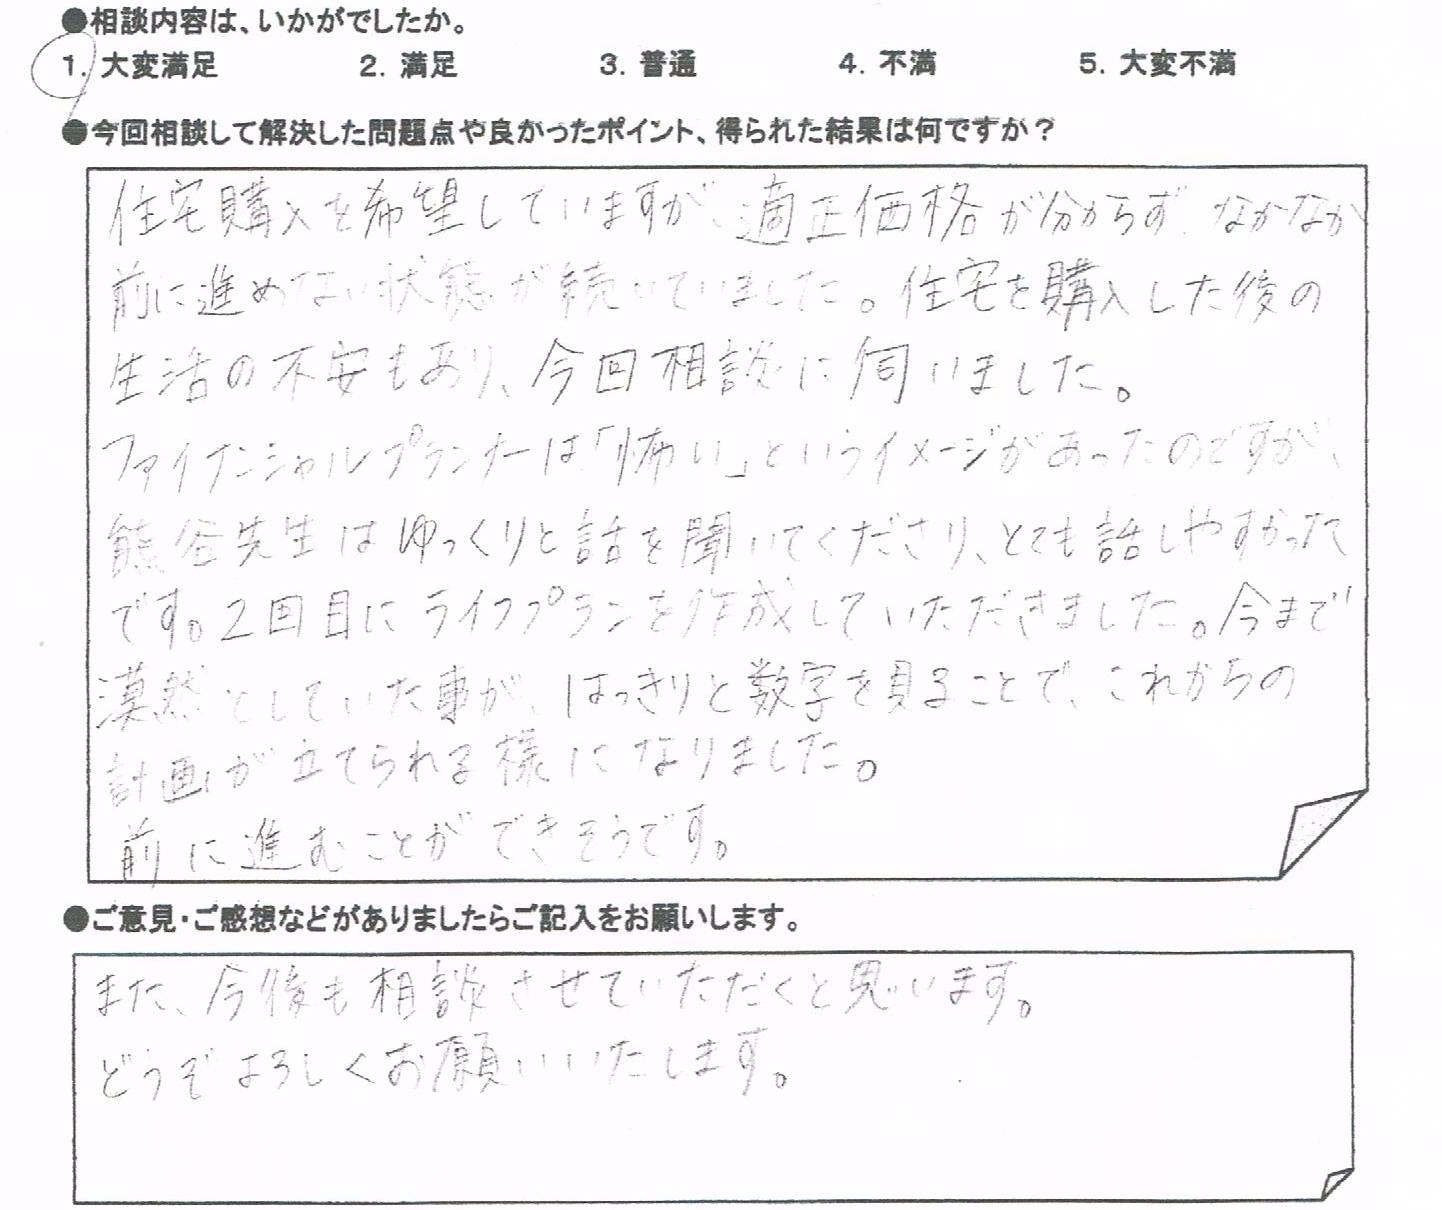 ●相談内容は、いかがでしたか。
1. 大変満足 2. 満足 3. 普通 4. 不満 5. 大変不満
●今回相談して解決した問題点や良かったポイント、得られた結果は何ですか？
住宅購入を希望していますが、適正価格が分からず、なかなか
前に進めない状態が続いていました。住宅を購入した後の
生活の不安もあり、今回相談に伺いました。
ファイナンシャルプランナーは「怖い」というイメージがあったのですが、
熊谷先生はゆっくりと話を聞いてくださり、とても話しやすかった
です。2回目にライフプランを作成していただきました。今まで
漠然としていた事が、はっきりと数字を見ることで、これからの
計画が立てられる様になりました。
前に進むことができそうです。
●ご意見・ご感想などがありましたらご記入をお願いします。
また、今後も相談させていただくと思います。
どうぞよろしくお願いいたします。